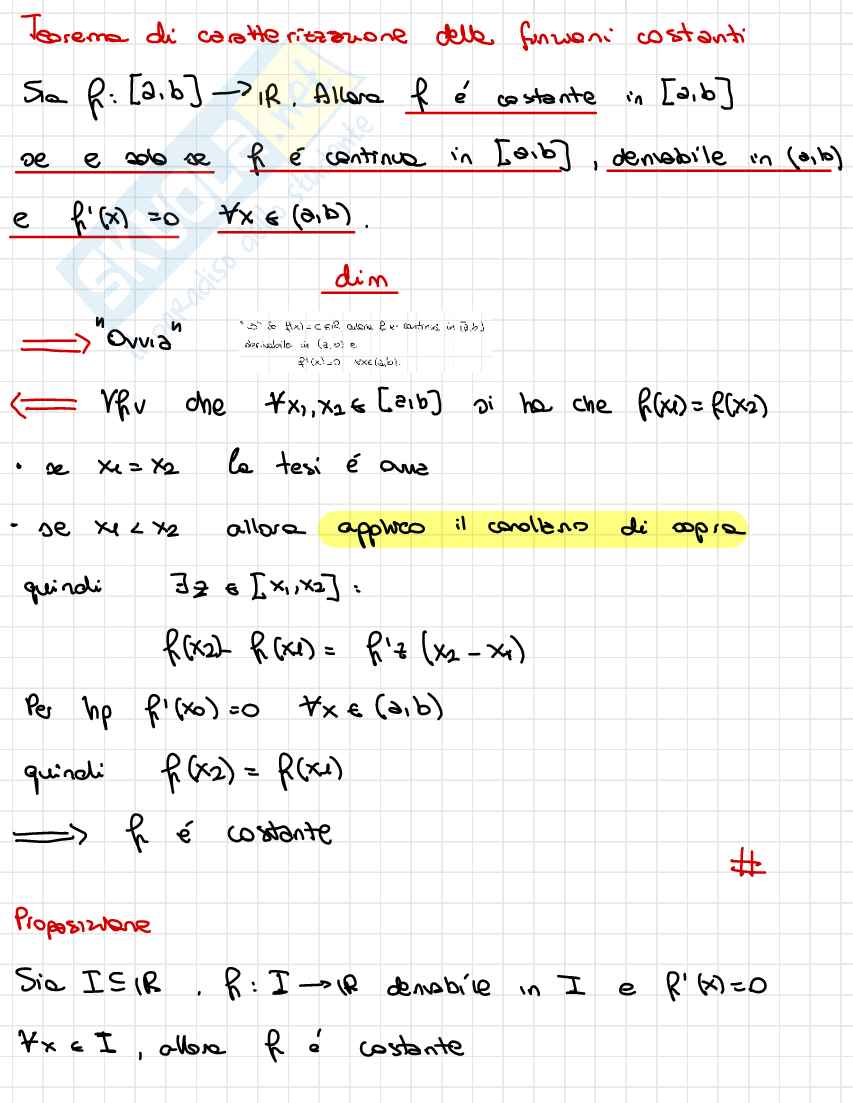 Teorema di caratterizzazione delle funzioni costanti
Sia f: [a,b] → ℝ. Allora f é costante in [a,b]
se e solo se f é continua in [a,b], derivabile in (a,b)
e f'(x) = 0 ∀x ∈ (a,b).
dim
⟹ "Ovvia"
"⇒" Se f(x) = c ∈ ℝ allora f e' continua in [a,b]
derivabile in (a,b) e
f'(x)=0 ∀x∈(a,b).
⟸ Vhv che ∀x₁,x₂ ∈ [a,b] si ha che f(x₁) = f(x₂)
• se x₁ = x₂ la tesi é ovvia
• se x₁ < x₂ allora applico il corollario di sopra
quindi ∃z ∈ [x₁,x₂] :
f(x₂)- f(x₁) = f'z (x₂ - x₁)
Per hp f'(x₀) = 0 ∀x ∈ (a,b)
quindi f(x₂) = f(x₁)
⟹ f é costante
#
Proposizione
Sia I ⊆ ℝ. f: I → ℝ derivabile in I e f'(x)=0
∀x ∈ I, allora f é costante
SKUOLA.net
il paradiso dello studente